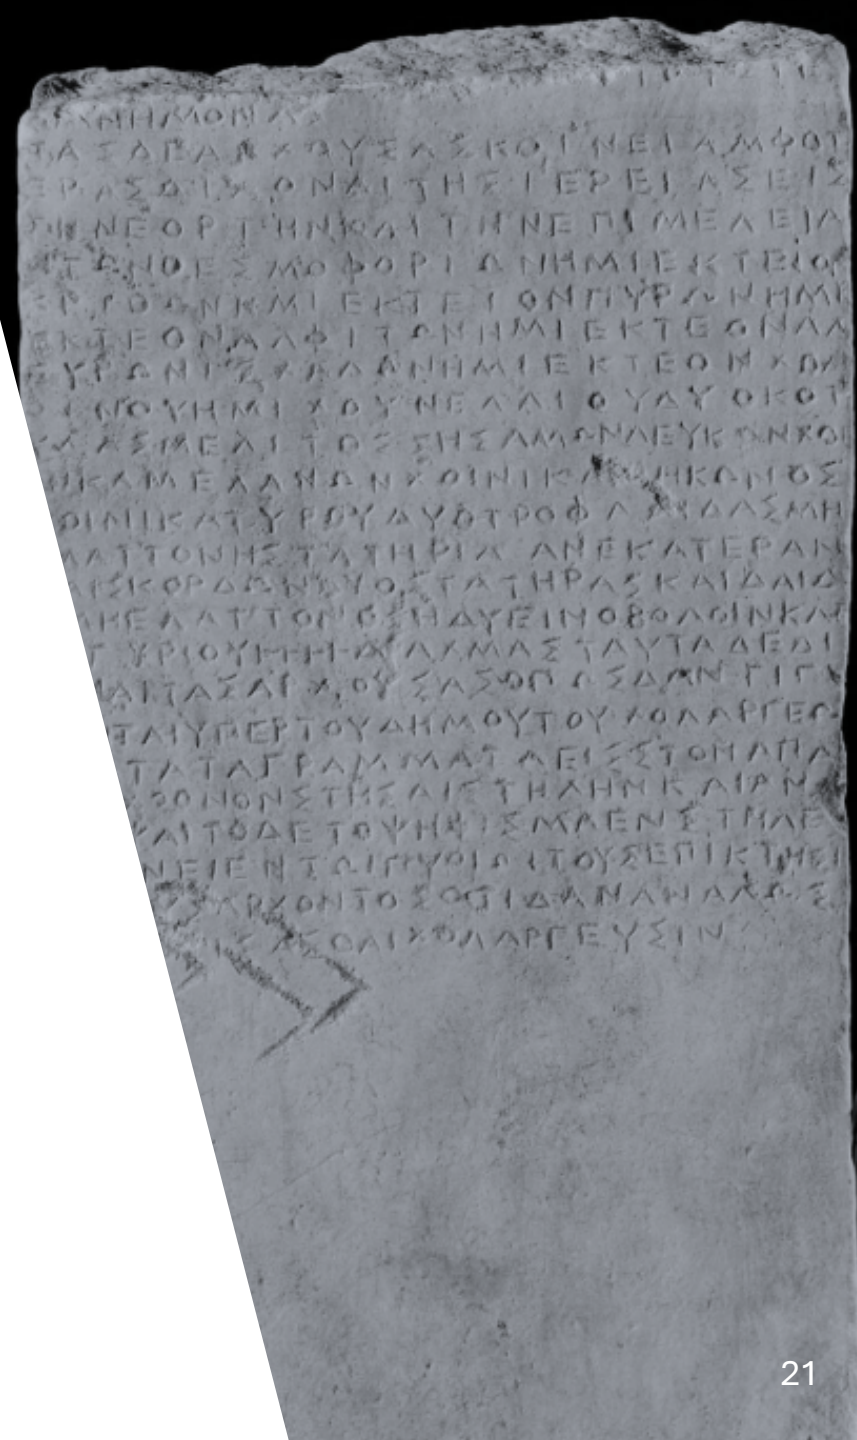 ΝΗΜΟΝΑ
ΤΑΣΔΕΑΡΧΟΥΣΑΣΚΟΙΝΕΙΑΜΦΟΤ
ΕΡΑΣΔΙΔΟΝΑΙΤΗΙΙΕΡΕΙΑΙΕΙΣ
ΤΗΝΕΟΡΤΗΝΚΑΙΤΗΝΕΠΙΜΕΛΕΙΑ
ΝΤΩΝΘΕΣΜΟΦΟΡΙΩΝΗΜΙΕΚΤΕΙΟ
ΚΡΙΘΩΝΗΜΙΕΚΤΕΙΟΝΠΥΡΩΝΗΜΙ
ΕΚΤΕΟΝΑΛΦΙΤΩΝΗΜΙΕΚΤΕΟΝΑΛ
ΕΥΡΩΝΙΣΧΑΔΩΝΗΜΙΕΚΤΕΟΝΧΟΑ
ΟΙΝΟΥΗΜΙΧΟΥΝΕΛΑΙΟΥΔΥΟΚΟΤ
ΥΛΑΣΜΕΛΙΤΟΣΣΗΣΑΜΩΝΛΕΥΚΩΝΧΟΙ
ΝΙΚΑΜΕΛΑΝΩΝΧΟΙΝΙΚΑΜΗΚΩΝΟΣ
ΟΙΝΙΚΑΤΥΡΟΥΔΥΟΤΡΟΦΑΛΙΔΑΣΜΗ
ΛΑΤΤΟΝΗΣΤΑΤΗΡΙΑΙΑΝΕΚΑΤΕΡΑΝ
ΑΙΣΚΟΡΔΩΝΔΥΟΣΤΑΤΗΡΑΣΚΑΙΔΑΙΔ
ΜΗΕΛΑΤΤΟΝΟΣΗΔΥΕΙΝΟΒΟΛΟΙΝΚΑΙ
ΓΥΡΙΟΥΗΗΗΗΔΡΑΧΜΑΣΤΑΥΤΑΔΕΔΙ
ΝΑΙΤΑΣΑΡΧΟΥΣΑΣΟΠΩΣΔΑΝΓΙΓΝ
ΤΑΙΥΠΕΡΤΟΥΔΗΜΟΥΤΟΥΧΟΛΑΡΓΕΩ
ΤΑΤΑΓΡΑΜΜΑΤΑΕΙΣΣΤΟΝΑΠΑ
ΡΟΝΟΝΣΤΗΣΑΙΣΤΗΛΗΝΚΑΙΑΝ
ΑΙΤΟΔΕΤΟΨΗΦΙΣΜΑΕΝΣΤΗΛΕ
ΝΕΙΕΝΤΩΙΠΥΘΙΩΙΤΟΥΣΕΠΙΚΤΗΣΙ
ΑΡΧΟΝΤΟΣΟΤΙΔΑΝΑΝΑΛΩΣ
ΑΣΘΑΙΧΟΛΑΡΓΕΥΣΙΝ
21